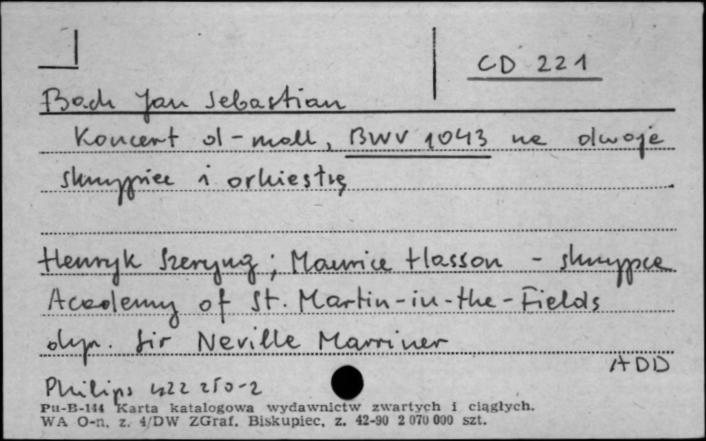 CD 221
Bach Jan Sebastian
Koncert d-moll, BWV 1043 na dwoje
skrzypiec i orkiestrę
Henryk Szeryng; Maurice Hasson - skrzypce
Academy of St. Martin-in-the-Fields
dyr. Sir Neville Marriner
ADD
Philips 422 250-2
Pu-B-144 Karta katalogowa wydawnictw zwartych i ciągłych.
WA O-n, z. 4/DW ZGraf. Biskupiec, z. 42-90 2 070 000 szt.